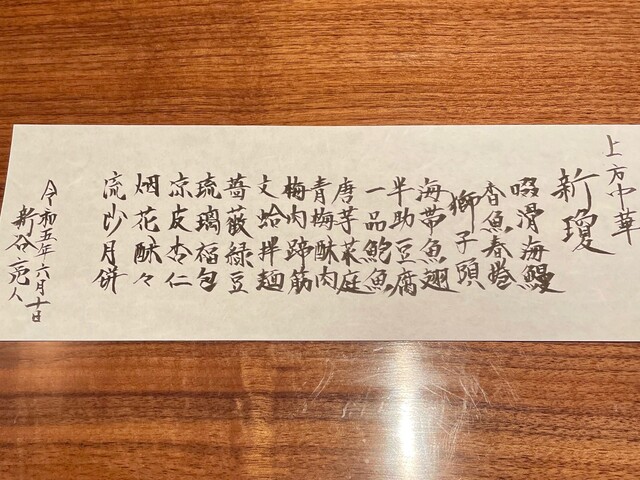 上方中華
新瓊
啜滑海鰻
香魚春捲
獅子頭
海帯魚翅
半助豆腐
一品鮑魚
唐芋菜庭
青梅酥肉
梅肉蹄筋
文蛤拌麺
薔薇緑豆
琉璃福包
凉皮杏仁
烟花酥々
流沙月餅
令和五年六月十日
新谷亮人